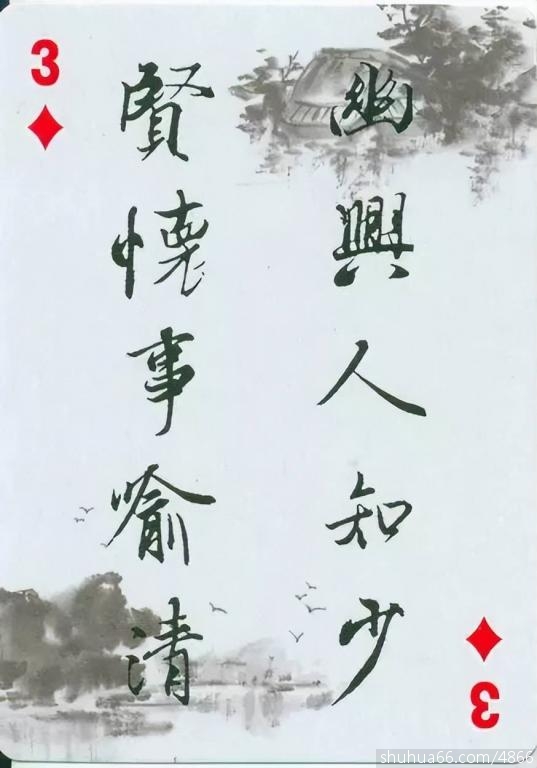 3
幽興人知少
賢懷事喻清
3
shuhua66.com/4866